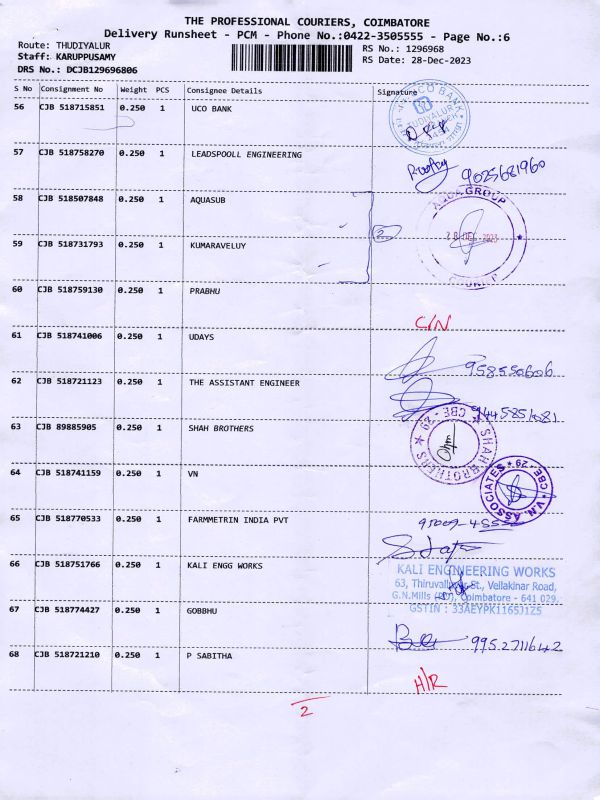 THE PROFESSIONAL COURIERS, COIMBATORE
Delivery Runsheet - PCM - Phone No.:0422-3505555 - Page No.:6
Route: THUDIYALUR
RS No.: 1296968
Staff: KARUPPUSAMY
RS Date: 28-Dec-2023
DRS No.: DCJB129696806
S No Consignment No Weight PCS Consignee Details Signature
56 CJB 518715851 0.250 1 UCO BANK
UCO BANK
THUDIYALUR
57 CJB 518758270 0.250 1 LEADSPOOLL ENGINEERING
9025681960
58 CJB 518507848 0.250 1 AQUASUB
AQUA GROUP
28 DEC 2023
2
59 CJB 518731793 0.250 1 KUMARAVELUY
60 CJB 518759130 0.250 1 PRABHU
C/N
61 CJB 518741006 0.250 1 UDAYS
9585550606
62 CJB 518721123 0.250 1 THE ASSISTANT ENGINEER
9445851081
63 CJB 89885905 0.250 1 SHAH BROTHERS
SHAH BROTHERS ★ CBE - 29 ★
64 CJB 518741159 0.250 1 VN
V.N. ASSOCIATES ★ CBE - 29 ★
65 CJB 518770533 0.250 1 FARMMETRIN INDIA PVT
66 CJB 518751766 0.250 1 KALI ENGG WORKS
KALI ENGINEERING WORKS
63, Thiruvalluvar St., Vellakinar Road,
G.N.Mills (PO), Coimbatore - 641 029.
GSTIN : 33AEYPK1165J1Z5
67 CJB 518774427 0.250 1 GOBBHU
9952711642
68 CJB 518721210 0.250 1 P SABITHA
H/R
2